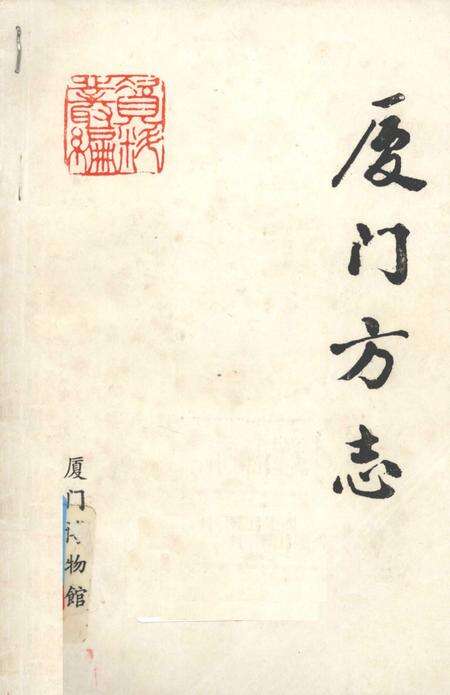 厦门方志
資料
叢編
厦门物館